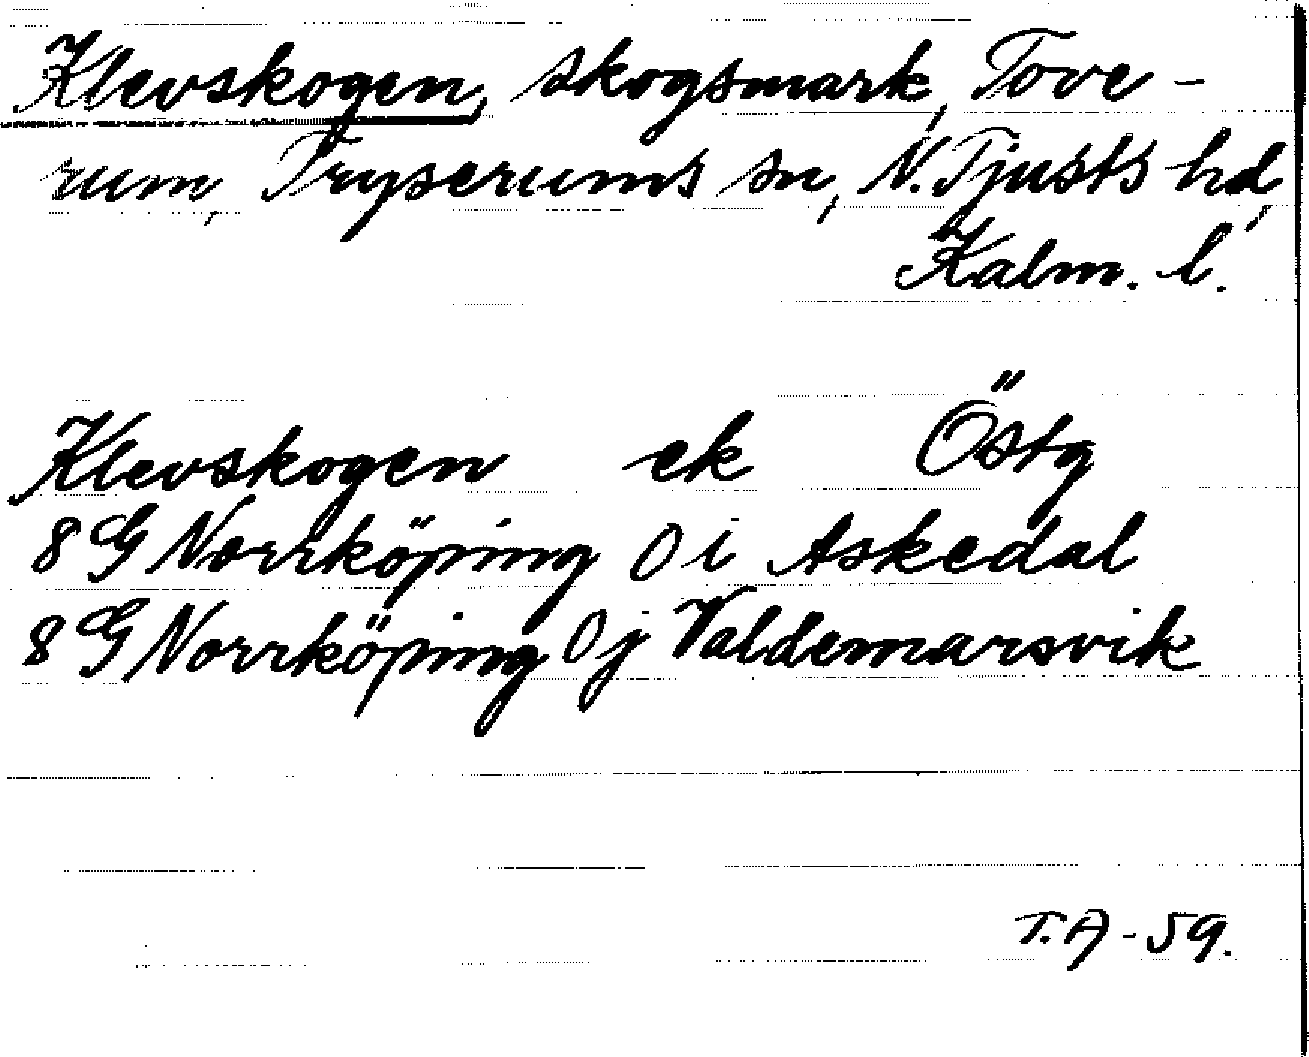 Klevskogen, skogsmark, Tove-
rum, Tryserums sn, N. Tjusts hd,
Kalm. l.
Klevskogen ek Östg
8 G Norrköping O i Askedal
8 G Norrköping O j Valdemarsvik
T.A -59.